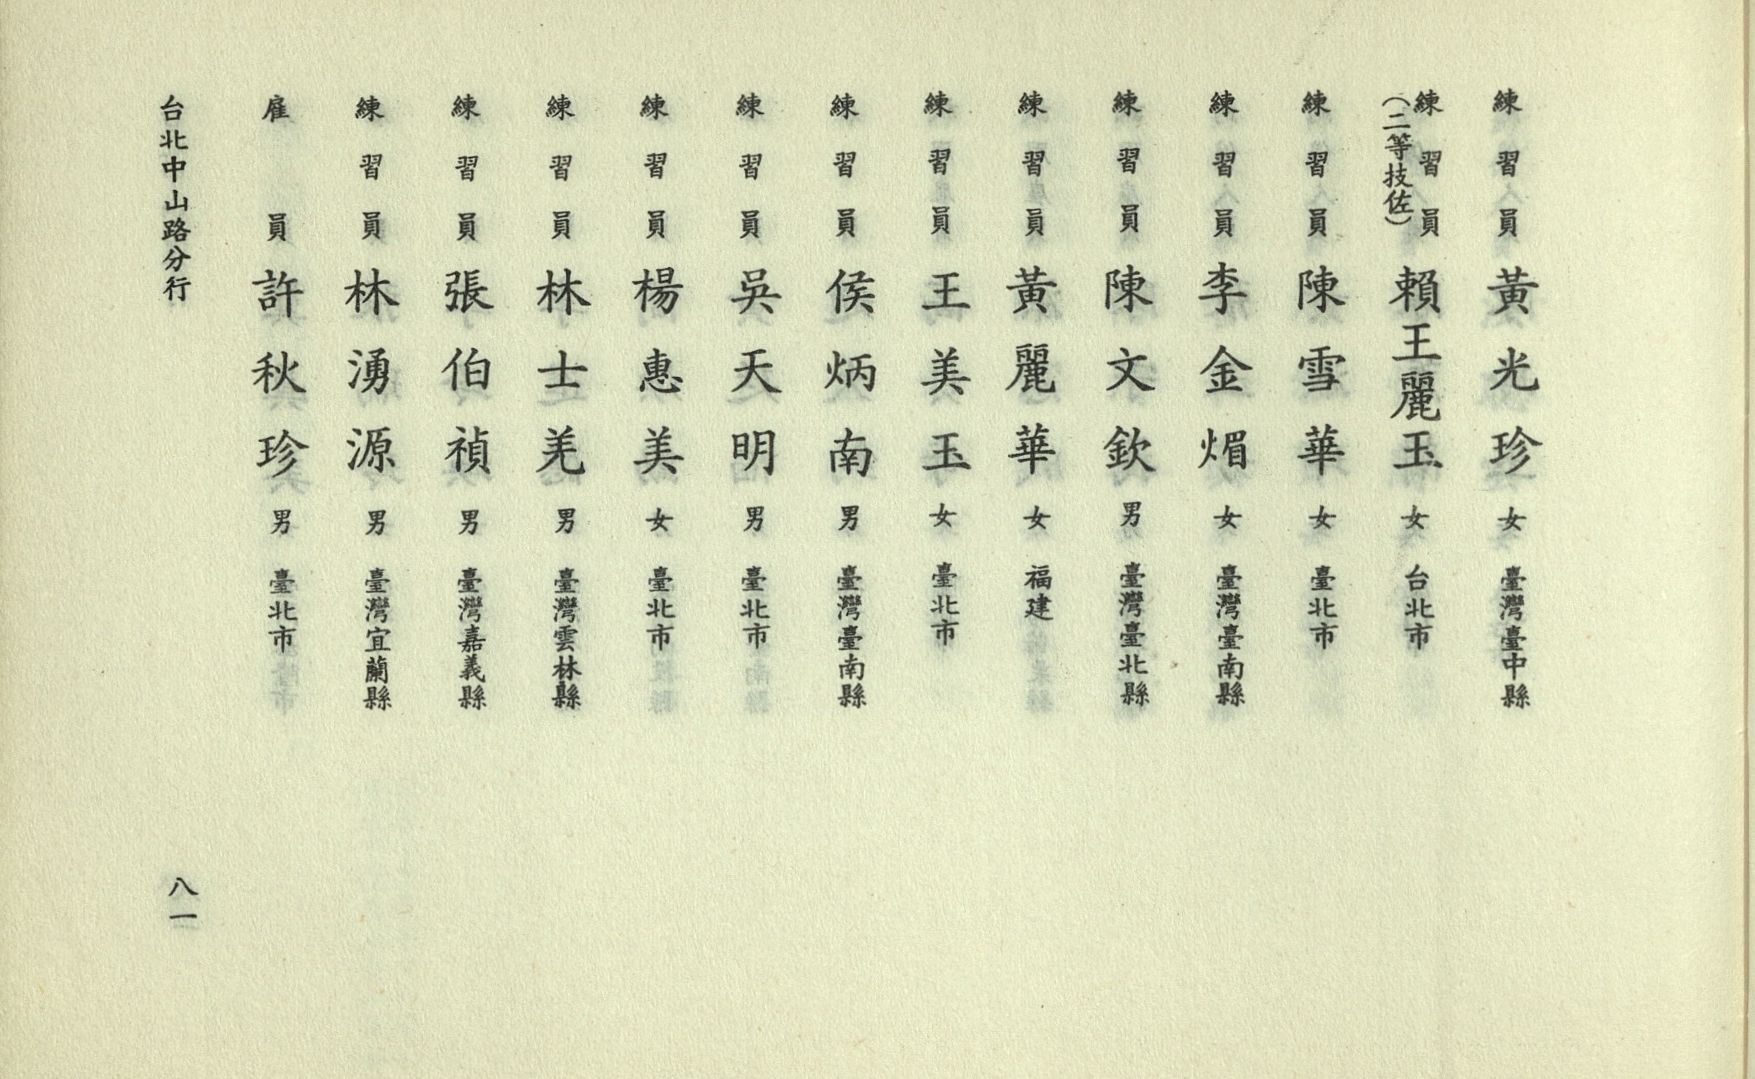 練習員 黃光珍 女 臺灣臺中縣
練習員(二等技佐) 賴王麗玉 女 台北市
練習員 陳雪華 女 臺北市
練習員 李金煝 女 臺灣臺南縣
練習員 陳文欽 男 臺灣臺北縣
練習員 黃麗華 女 福建
練習員 王美玉 女 臺北市
練習員 侯炳南 男 臺灣臺南縣
練習員 吳天明 男 臺北市
練習員 楊惠美 女 臺北市
練習員 林士羌 男 臺灣雲林縣
練習員 張伯禎 男 臺灣嘉義縣
練習員 林湧源 男 臺灣宜蘭縣
雇員 許秋珍 男 臺北市
台北中山路分行
八一